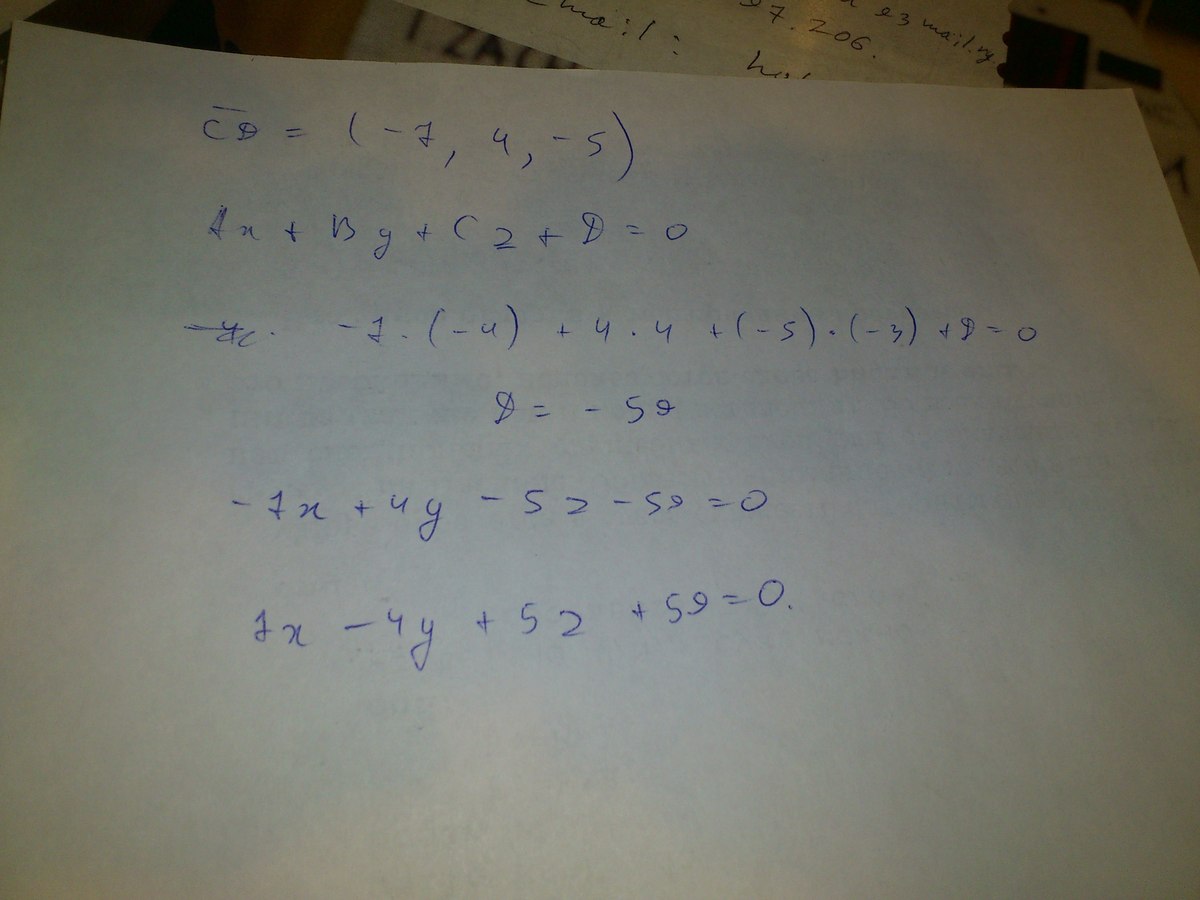 Email:
97.206.
mail.ru
C̅D̅ = (-7, 4, -5)
Ax + By + Cz + D = 0
-7·(-4) + 4·4 + (-5)·(-3) + D = 0
D = -59
-7x + 4y - 5z - 59 = 0
7x - 4y + 5z + 59 = 0.